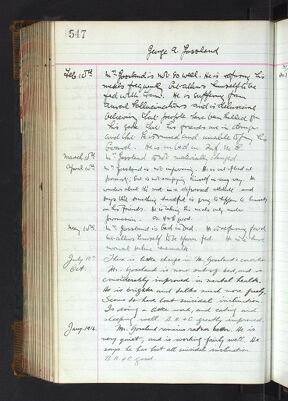 547
George A. Gossland
Feb. 15th. Mr. Gossland is not so well. He is refusing his
meals frequently but allows himself to be
fed with spoon. He is suffering from
aural hallucinations and is delusional
believing that people have been killed for
his sake that his friends are in danger
and that he is ruined and unable to
He is in bed in
March 15th. Mr. Gossland is not materially changed.
April 15th. Mr. Gossland is not improving. He is not
but is not occupying himself in any way. He
wanders about the ward in a depressed attitude and
says that something dreadful is going to happen to himself
or his friends. He is taking his meals only under
persuasion. good.
May 15th. Mr. Gossland is in bed. He is refusing food
but allows himself to be spoon fed. He is in
mental
July 15th. There is little change in Mr. Gossland's condition
Oct. Mr. Gossland is now out of bed, and is
considerably improved in mental health.
He is brighter and talks much more freely
Seems to have lost suicidal inclination
Is doing a little work, and eating and
sleeping well. B. H. & C. greatly improved.
Jany. 1916. Mr. Gossland remains rather better. He is
very quiet, and is working fairly well. He
says he has lost all suicidal inclination
B. H. & C. good.